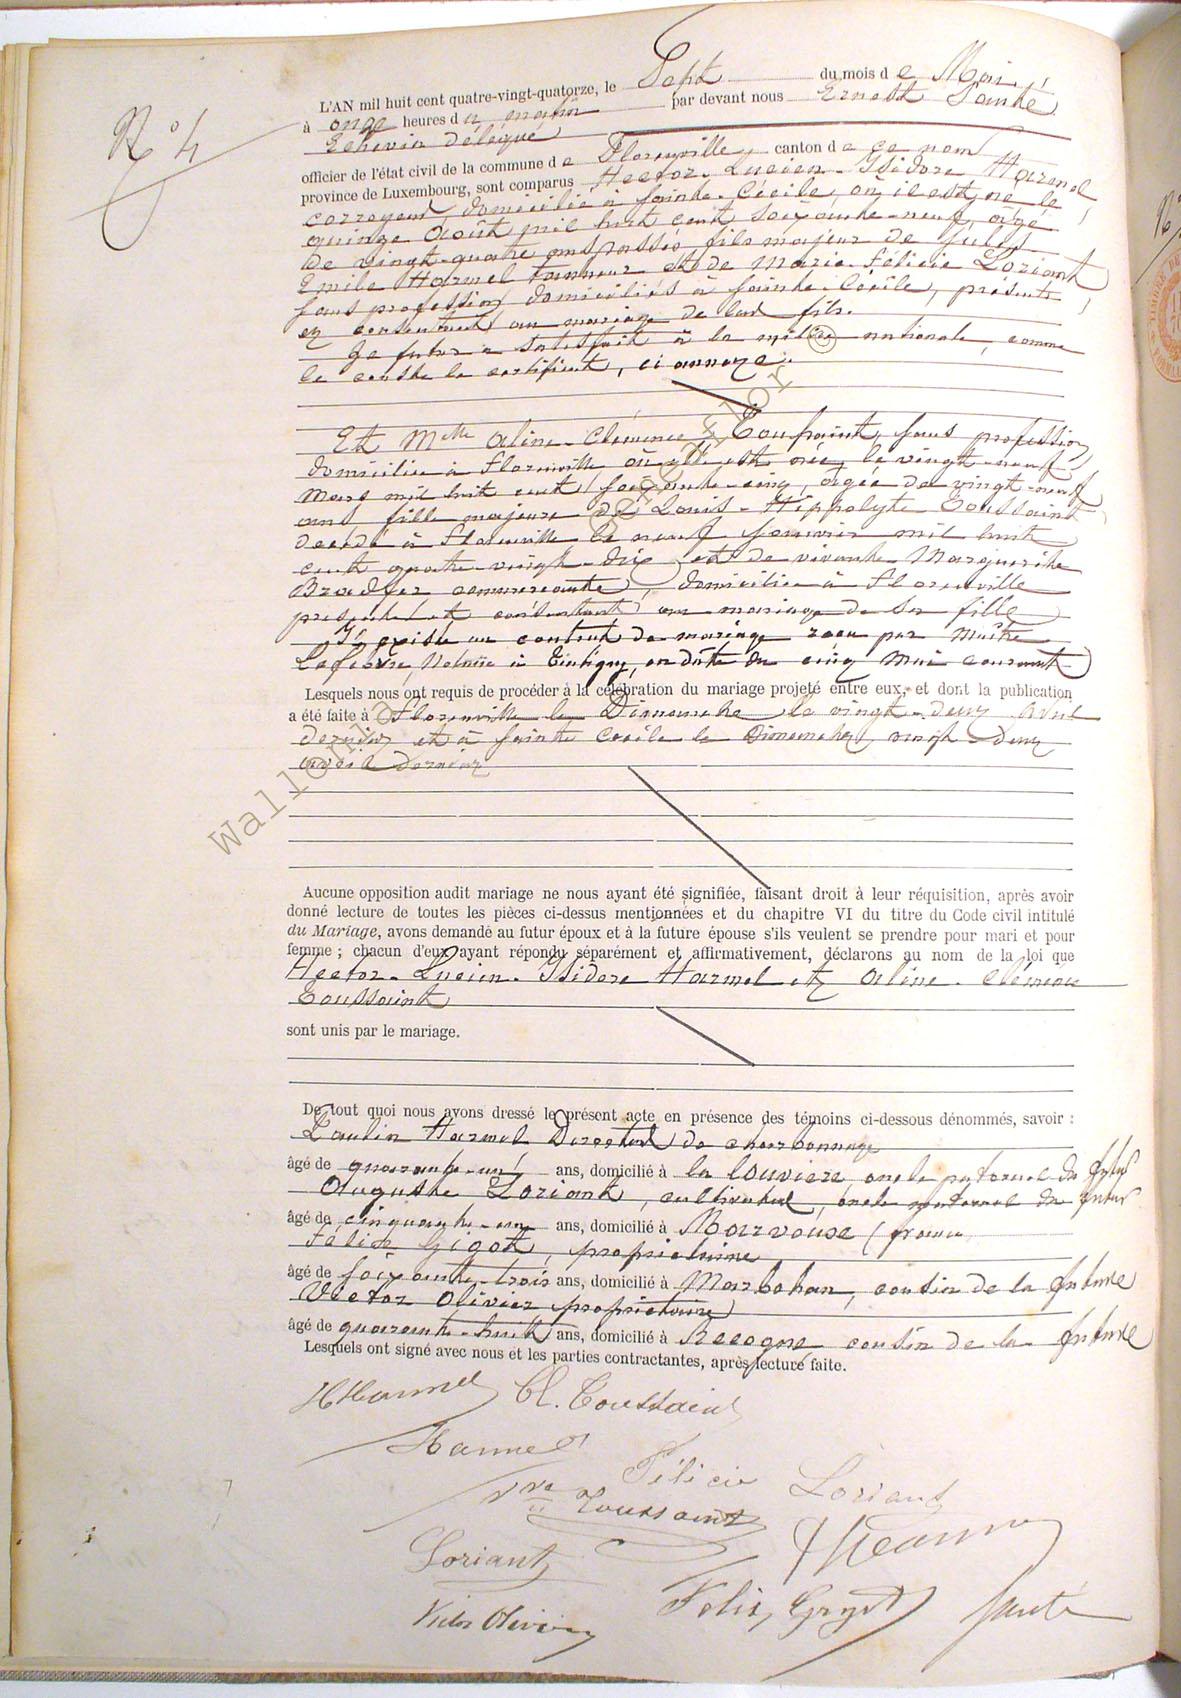 N° 4
L'AN mil huit cent quatre-vingt-quatorze, le Sept du mois de Mai
à onze heures du matin par devant nous Ernest Santé
Echevin délégué
officier de l'état civil de la commune de Florenville, canton de ce nom
province de Luxembourg, sont comparus Hector-Lucien-Isidore Harmel
corroyeur, domicilié à Sainte-Cécile, où il est né le
quinze Août mil huit cent soixante-neuf, âgé
de vingt-quatre ans passés, fils majeur de Jules
Emile Harmel tanneur et de Marie Félicie Loriant
sans profession domiciliés à Sainte-Cécile, présents
et consentant au mariage de leur fils.
Le futur a satisfait à la milice nationale, comme
le conste le certificat, ci annexé.
Et Melle Aline-Clémence Toussaint, sans profession
domiciliée à Florenville où elle est née, le vingt-neuf
Mars mil huit cent soixante-cinq, âgée de vingt-neuf
ans, fille majeure de Louis-Hippolyte Toussaint
décédé à Florenville le neuf janvier mil huit
cent quatre-vingt-dix et de vivante Marguerite
Bradfer commerçante, domiciliée à Florenville
présente et consentant au mariage de sa fille
Il existe un contrat de mariage reçu par Maître
Lefèvre, Notaire à Tintigny, en date du cinq Mai courant
Lesquels nous ont requis de procéder à la célébration du mariage projeté entre eux, et dont la publication
a été faite à Florenville le Dimanche le vingt-deux Avril
dernier et à Sainte Cécile le Dimanche vingt-deux
avril dernier
Aucune opposition audit mariage ne nous ayant été signifiée, faisant droit à leur réquisition, après avoir
donné lecture de toutes les pièces ci-dessus mentionnées et du chapitre VI du titre du Code civil intitulé
du Mariage, avons demandé au futur époux et à la future épouse s'ils veulent se prendre pour mari et pour
femme ; chacun d'eux ayant répondu séparément et affirmativement, déclarons au nom de la loi que
Hector-Lucien-Isidore Harmel et Aline-Clémence
Toussaint
sont unis par le mariage.
De tout quoi nous avons dressé le présent acte en présence des témoins ci-dessous dénommés, savoir :
Harmel Directeur de charbonnage
âgé de quarante-un ans, domicilié à la Louvière, oncle paternel du futur
Auguste Loriant, cultivateur, oncle maternel du futur
âgé de cinquante-un ans, domicilié à Marvouse (France
Félix Gigot, propriétaire
âgé de soixante-trois ans, domicilié à Marbehan, cousin de la future
Victor Olivier propriétaire
âgé de quarante-huit ans, domicilié à Recogne, cousin de la future
Lesquels ont signé avec nous et les parties contractantes, après lecture faite.
HHarmel Cl. Toussaint
Harmel
Félicie Loriant
Vve Toussaint
Harmel
Loriant
Félix Gigot Santé
Victor Olivier